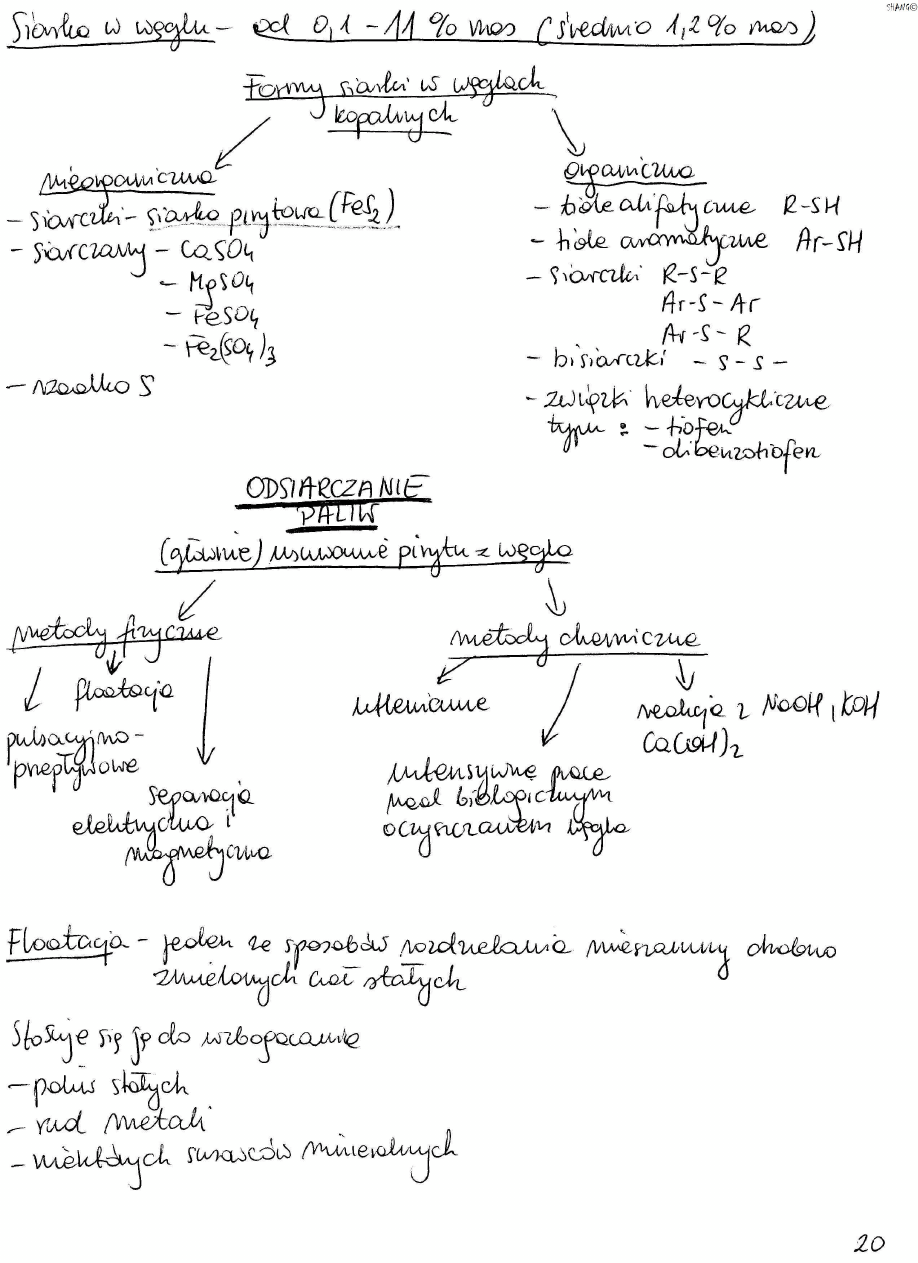 SHANG©
Siarka w węglu - od 0,1 - 11 % mas (średnio 1,2 % mas)
Formy siarki w węglach
kopalnych
nieorganiczna
- siarczki - siarka pirytowa (FeS2)
- siarczany - CaSO4
- MgSO4
- FeSO4
- Fe2(SO4)3
- rzadko S
organiczna
- tiole alifatyczne R-SH
- tiole aromatyczne Ar-SH
- siarczki R-S-R
Ar-S-Ar
Ar-S-R
- bisiarczki -S-S-
- związki heterocykliczne
typu : - tiofen
- dibenzotiofen
ODSIARCZANIE
PALIW
(głównie) usuwanie pirytu z węgla
metody fizyczne
flotacja
pulsacyjno-
przepływowe
separacja
elektryczna i
magnetyczna
metody chemiczne
utlenianie
intensywne prace
nad biologicznym
oczyszczaniem węgla
reakcja z NaOH, KOH
Ca(OH)2
Flotacja - jeden ze sposobów rozdzielania mieszaniny drobno
zmielonych ciał stałych
Stosuje się ją do wzbogacania
- paliw stałych
- rud metali
- niektórych surowców mineralnych
20